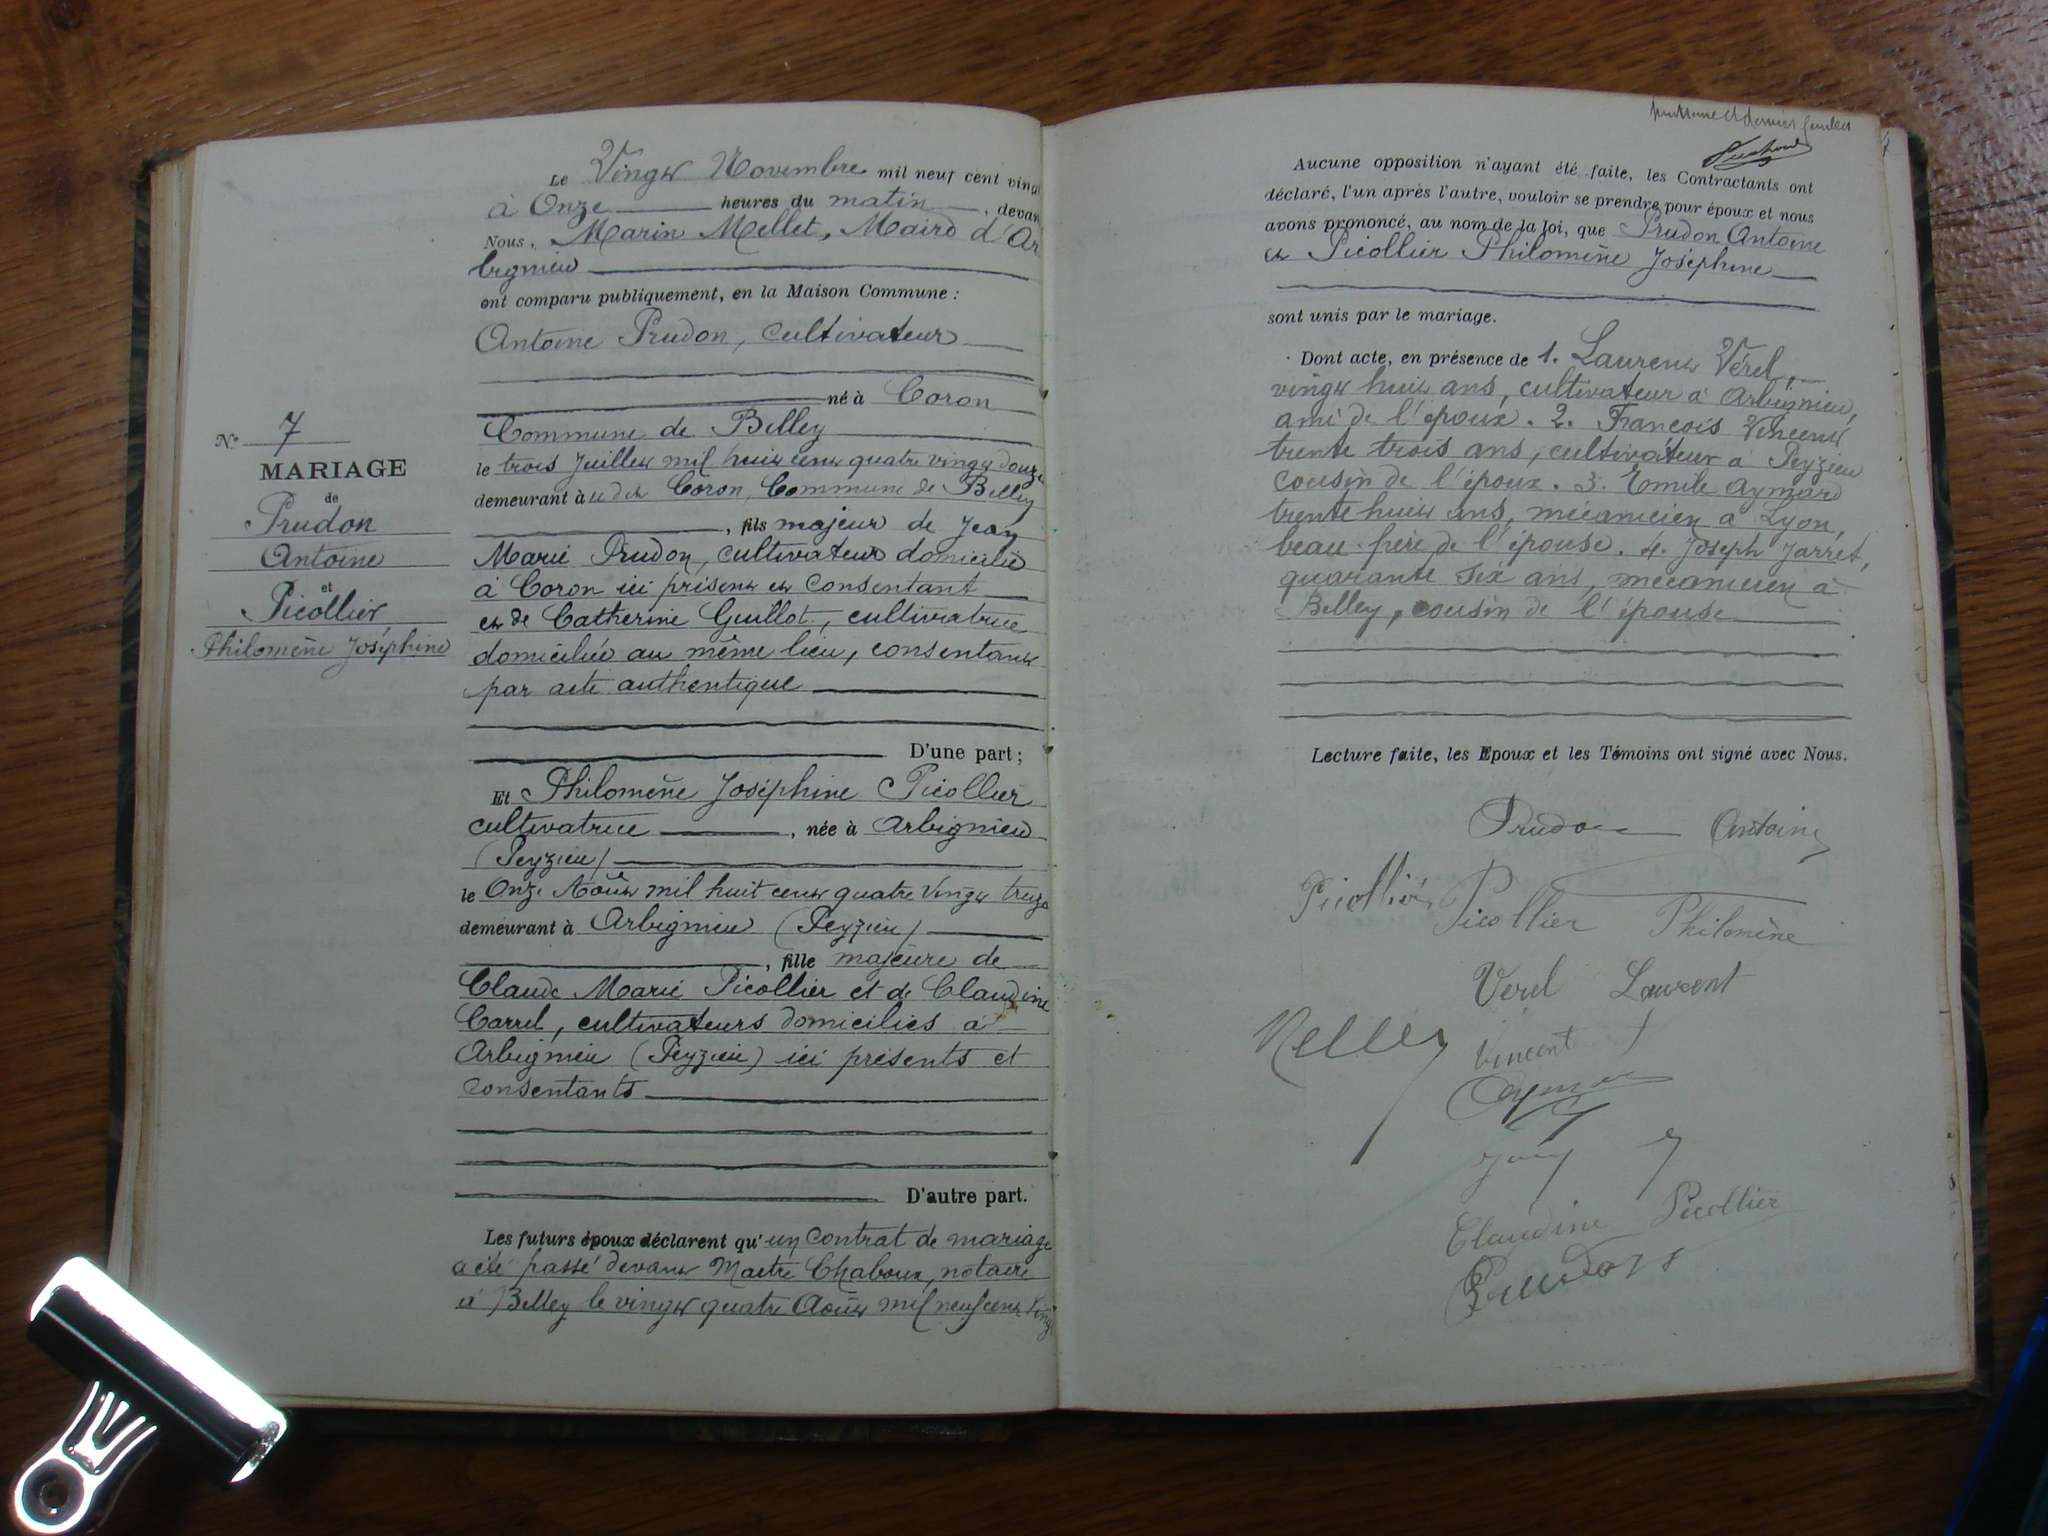 Le Vingt Novembre mil neuf cent vingt
à Onze heures du matin, devant
Nous, Marin Mellet, Maire d'Ar
bignieu
ont comparu publiquement, en la Maison Commune :
Antoine Prudon, cultivateur
né à Coron
Commune de Belley
le trois Juillet mil huit cent quatre vingt douze
demeurant à Coron, Commune de Belley
, fils majeur de Jean
Marie Prudon, cultivateur domicilié
à Coron ici présent et consentant
et de Catherine Guillot, cultivatrice
domiciliée au même lieu, consentant
par acte authentique
D'une part ;
N° 7
MARIAGE
de
Prudon
Antoine
et
Picollier
Philomène Joséphine
Et Philomène Joséphine Picollier
cultivatrice, née à Arbignieu
(Peyzieu)
le Onze Août mil huit cent quatre vingt treize
demeurant à Arbignieu (Peyzieu)
, fille majeure de
Claude Marie Picollier et de Claudine
Carrel, cultivateurs domiciliés à
Arbignieu (Peyzieu) ici présents et
consentants
D'autre part.
Les futurs époux déclarent qu'un contrat de mariage
a été passé devant Maître Chaboux, notaire
à Belley le vingt quatre Août mil neuf cent vingt
et dernier feuillet
Aucune opposition n'ayant été faite, les Contractants ont
déclaré, l'un après l'autre, vouloir se prendre pour époux et nous
avons prononcé, au nom de la loi, que Prudon Antoine
et Picollier Philomène Joséphine
sont unis par le mariage.
Dont acte, en présence de 1. Laurent Vérel,
vingt huit ans, cultivateur à Arbignieu,
ami de l'époux. 2. François Vincent
trente trois ans, cultivateur à Peyzieu
cousin de l'époux. 3. Emile Aymard
trente huit ans, mécanicien à Lyon,
beau-frère de l'épouse. 4. Joseph Jarret,
quarante six ans, mécanicien à
Belley, cousin de l'épouse
Lecture faite, les Epoux et les Témoins ont signé avec Nous.
Prudon Antoine
Picollier Picollier Philomène
Verel Laurent
Mellet Vincent
Aymard
Claudine Picollier
Prudon